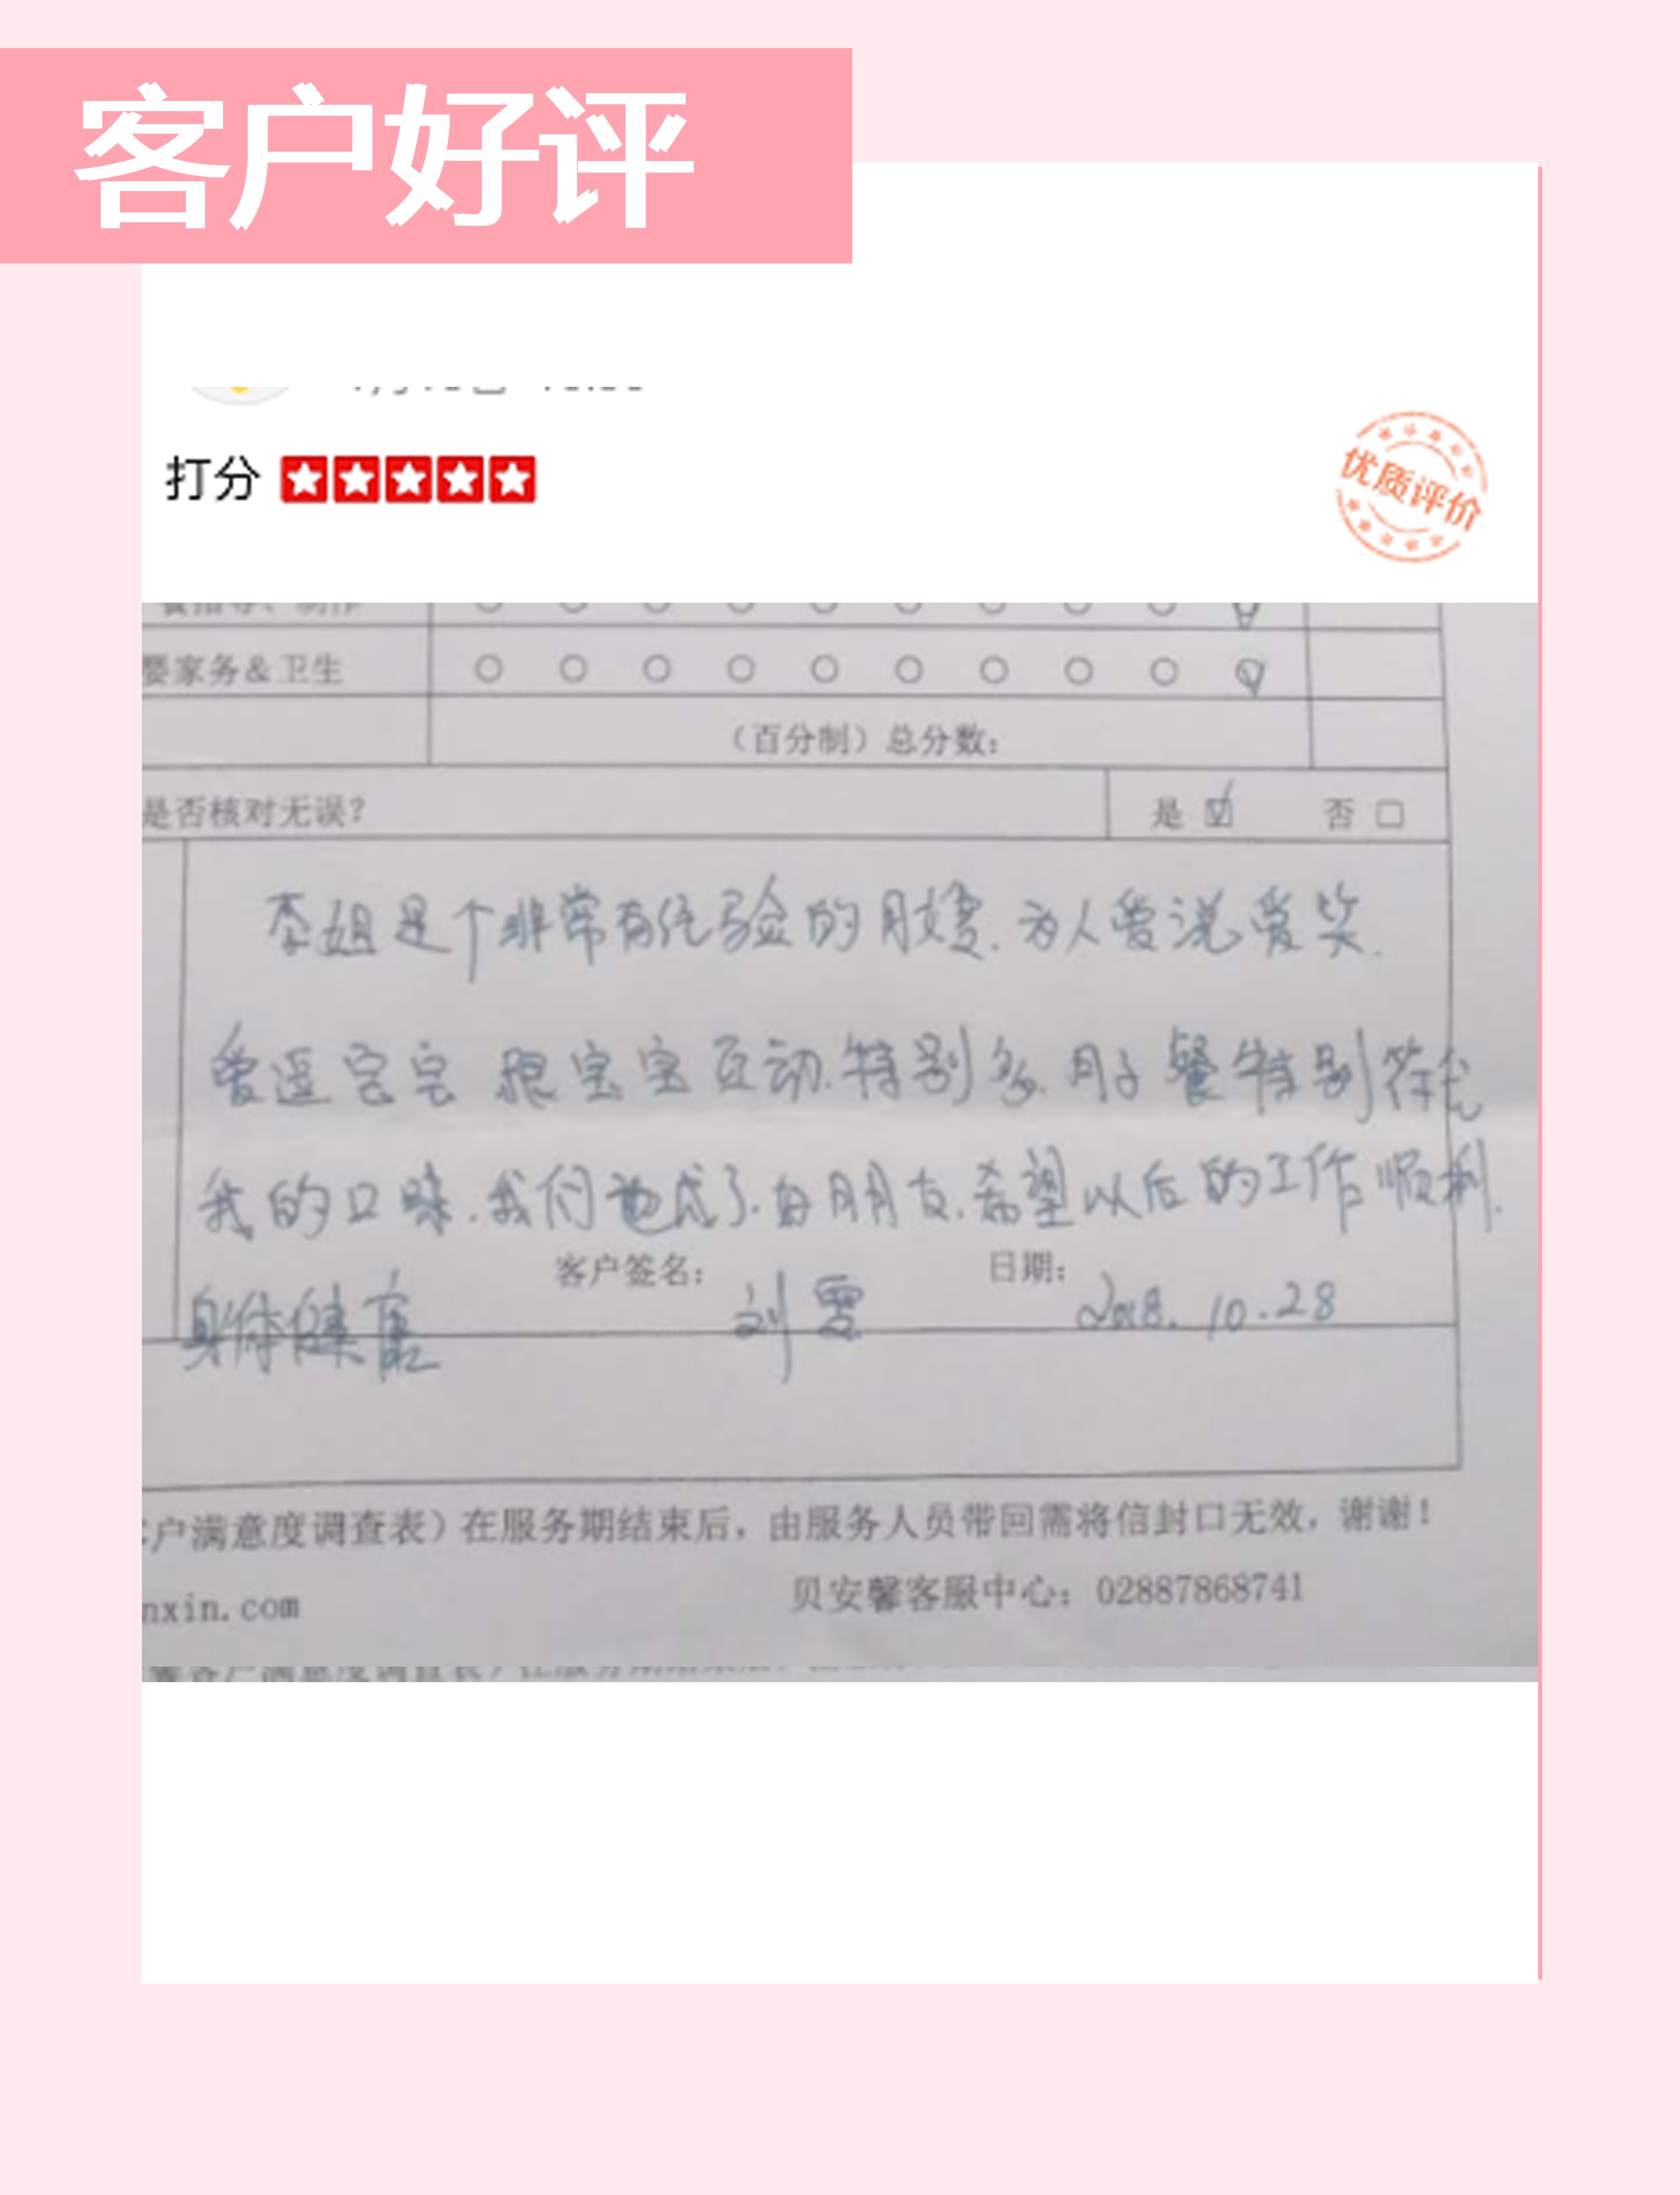 客户好评
打分
优质评价
餐指导、制作
婴家务&卫生
（百分制）总分数：
是否核对无误？ 是 否
李姐是个非常有经验的月嫂.为人爱说爱笑.
爱逗宝宝 跟宝宝互动.特别多.月子餐特别符合
我的口味.我们也成了.好朋友.希望以后的工作顺利.
客户签名： 日期：
身体健康 刘 2018.10.28
户满意度调查表）在服务期结束后，由服务人员带回需将信封口无效，谢谢！
nxin.com 贝安馨客服中心：02887868741